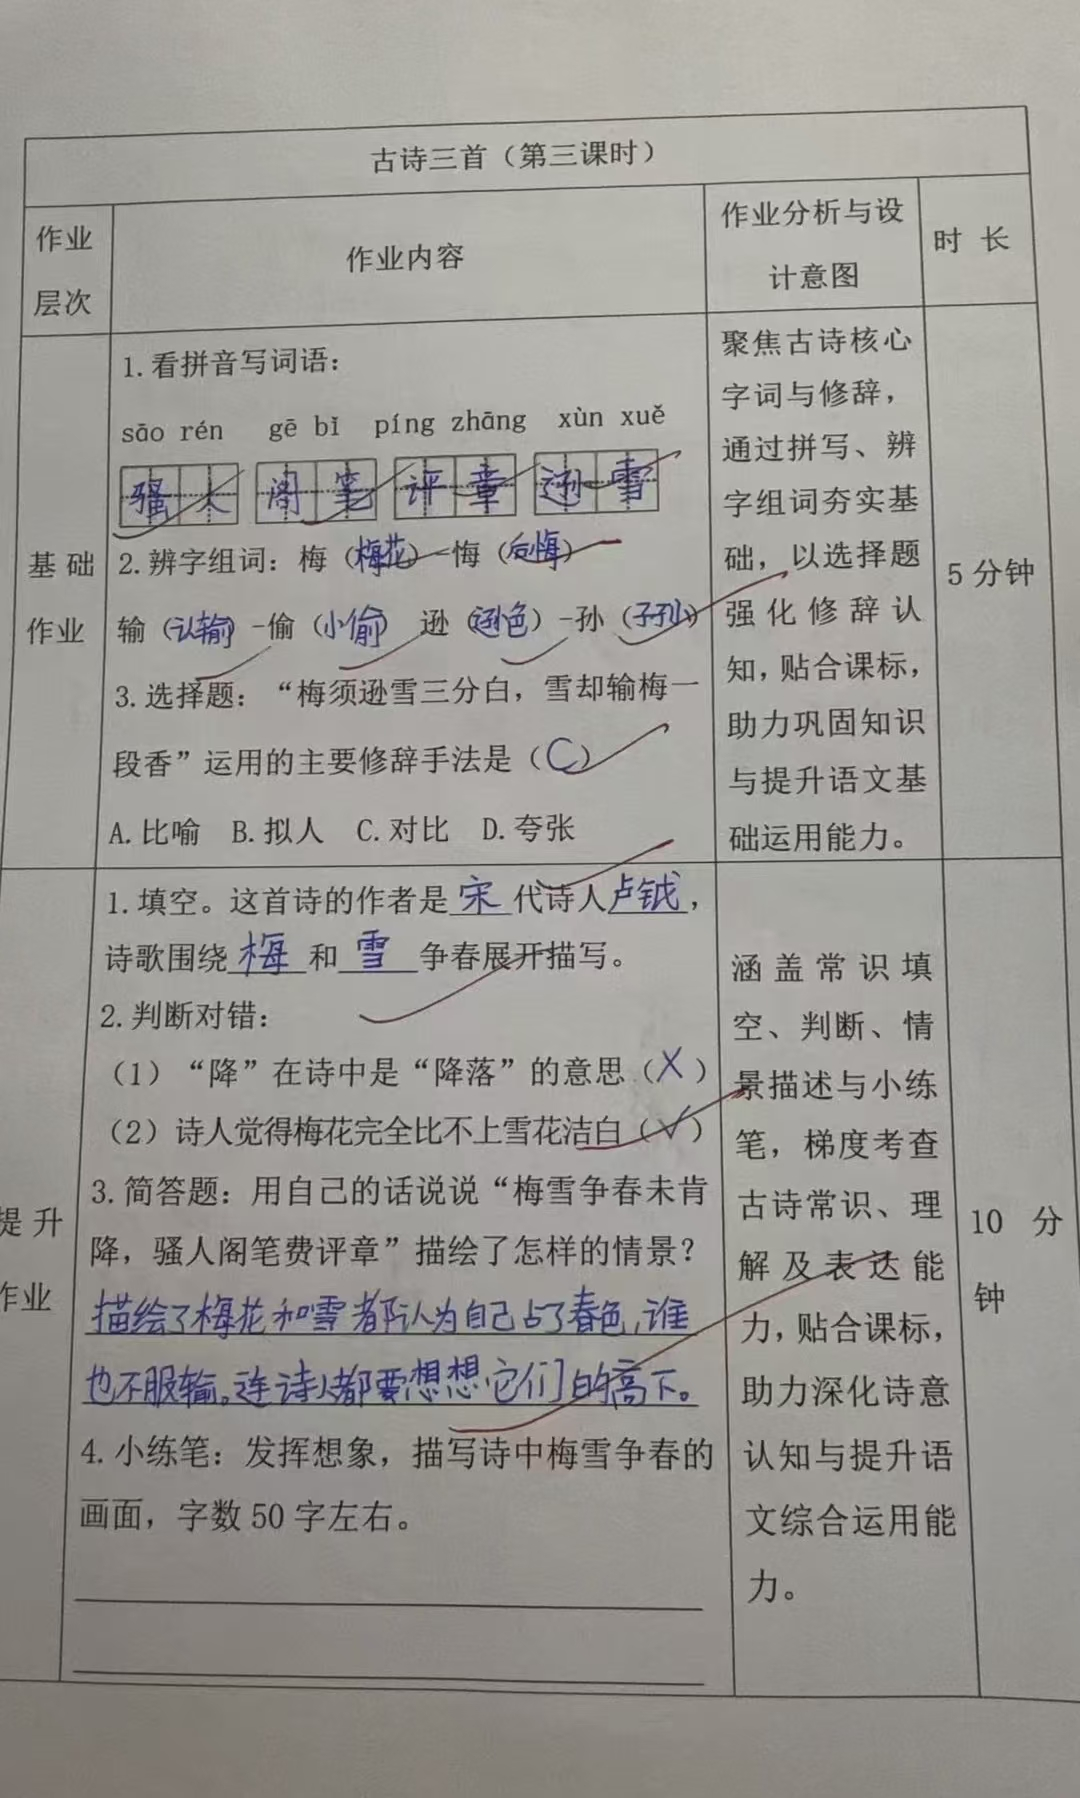 古诗三首（第三课时）
作业层次
作业内容
作业分析与设计意图
时 长
基 础
作业
1.看拼音写词语：
sāo rén gē bǐ píng zhāng xùn xuě
骚人 阁笔 评章 逊雪
2.辨字组词：梅（梅花）-悔（后悔）
输（认输）-偷（小偷） 逊（逊色）-孙（子孙）
3.选择题：“梅须逊雪三分白，雪却输梅一
段香”运用的主要修辞手法是（C）
A.比喻 B.拟人 C.对比 D.夸张
聚焦古诗核心
字词与修辞，
通过拼写、辨
字组词夯实基
础，以选择题
强化修辞认
知，贴合课标，
助力巩固知识
与提升语文基
础运用能力。
5分钟
提 升
作业
1.填空。这首诗的作者是宋代诗人卢钺，
诗歌围绕梅和雪争春展开描写。
2.判断对错：
（1）“降”在诗中是“降落”的意思（X）
（2）诗人觉得梅花完全比不上雪花洁白（√）
3.简答题：用自己的话说说“梅雪争春未肯
降，骚人阁笔费评章”描绘了怎样的情景？
描绘了梅花和雪都认为自己占了春色，谁
也不服输。连诗人都要想想它们的高下。
4.小练笔：发挥想象，描写诗中梅雪争春的
画面，字数50字左右。
涵盖常识填
空、判断、情
景描述与小练
笔，梯度考查
古诗常识、理
解及表达能
力，贴合课标，
助力深化诗意
认知与提升语
文综合运用能
力。
10 分
钟